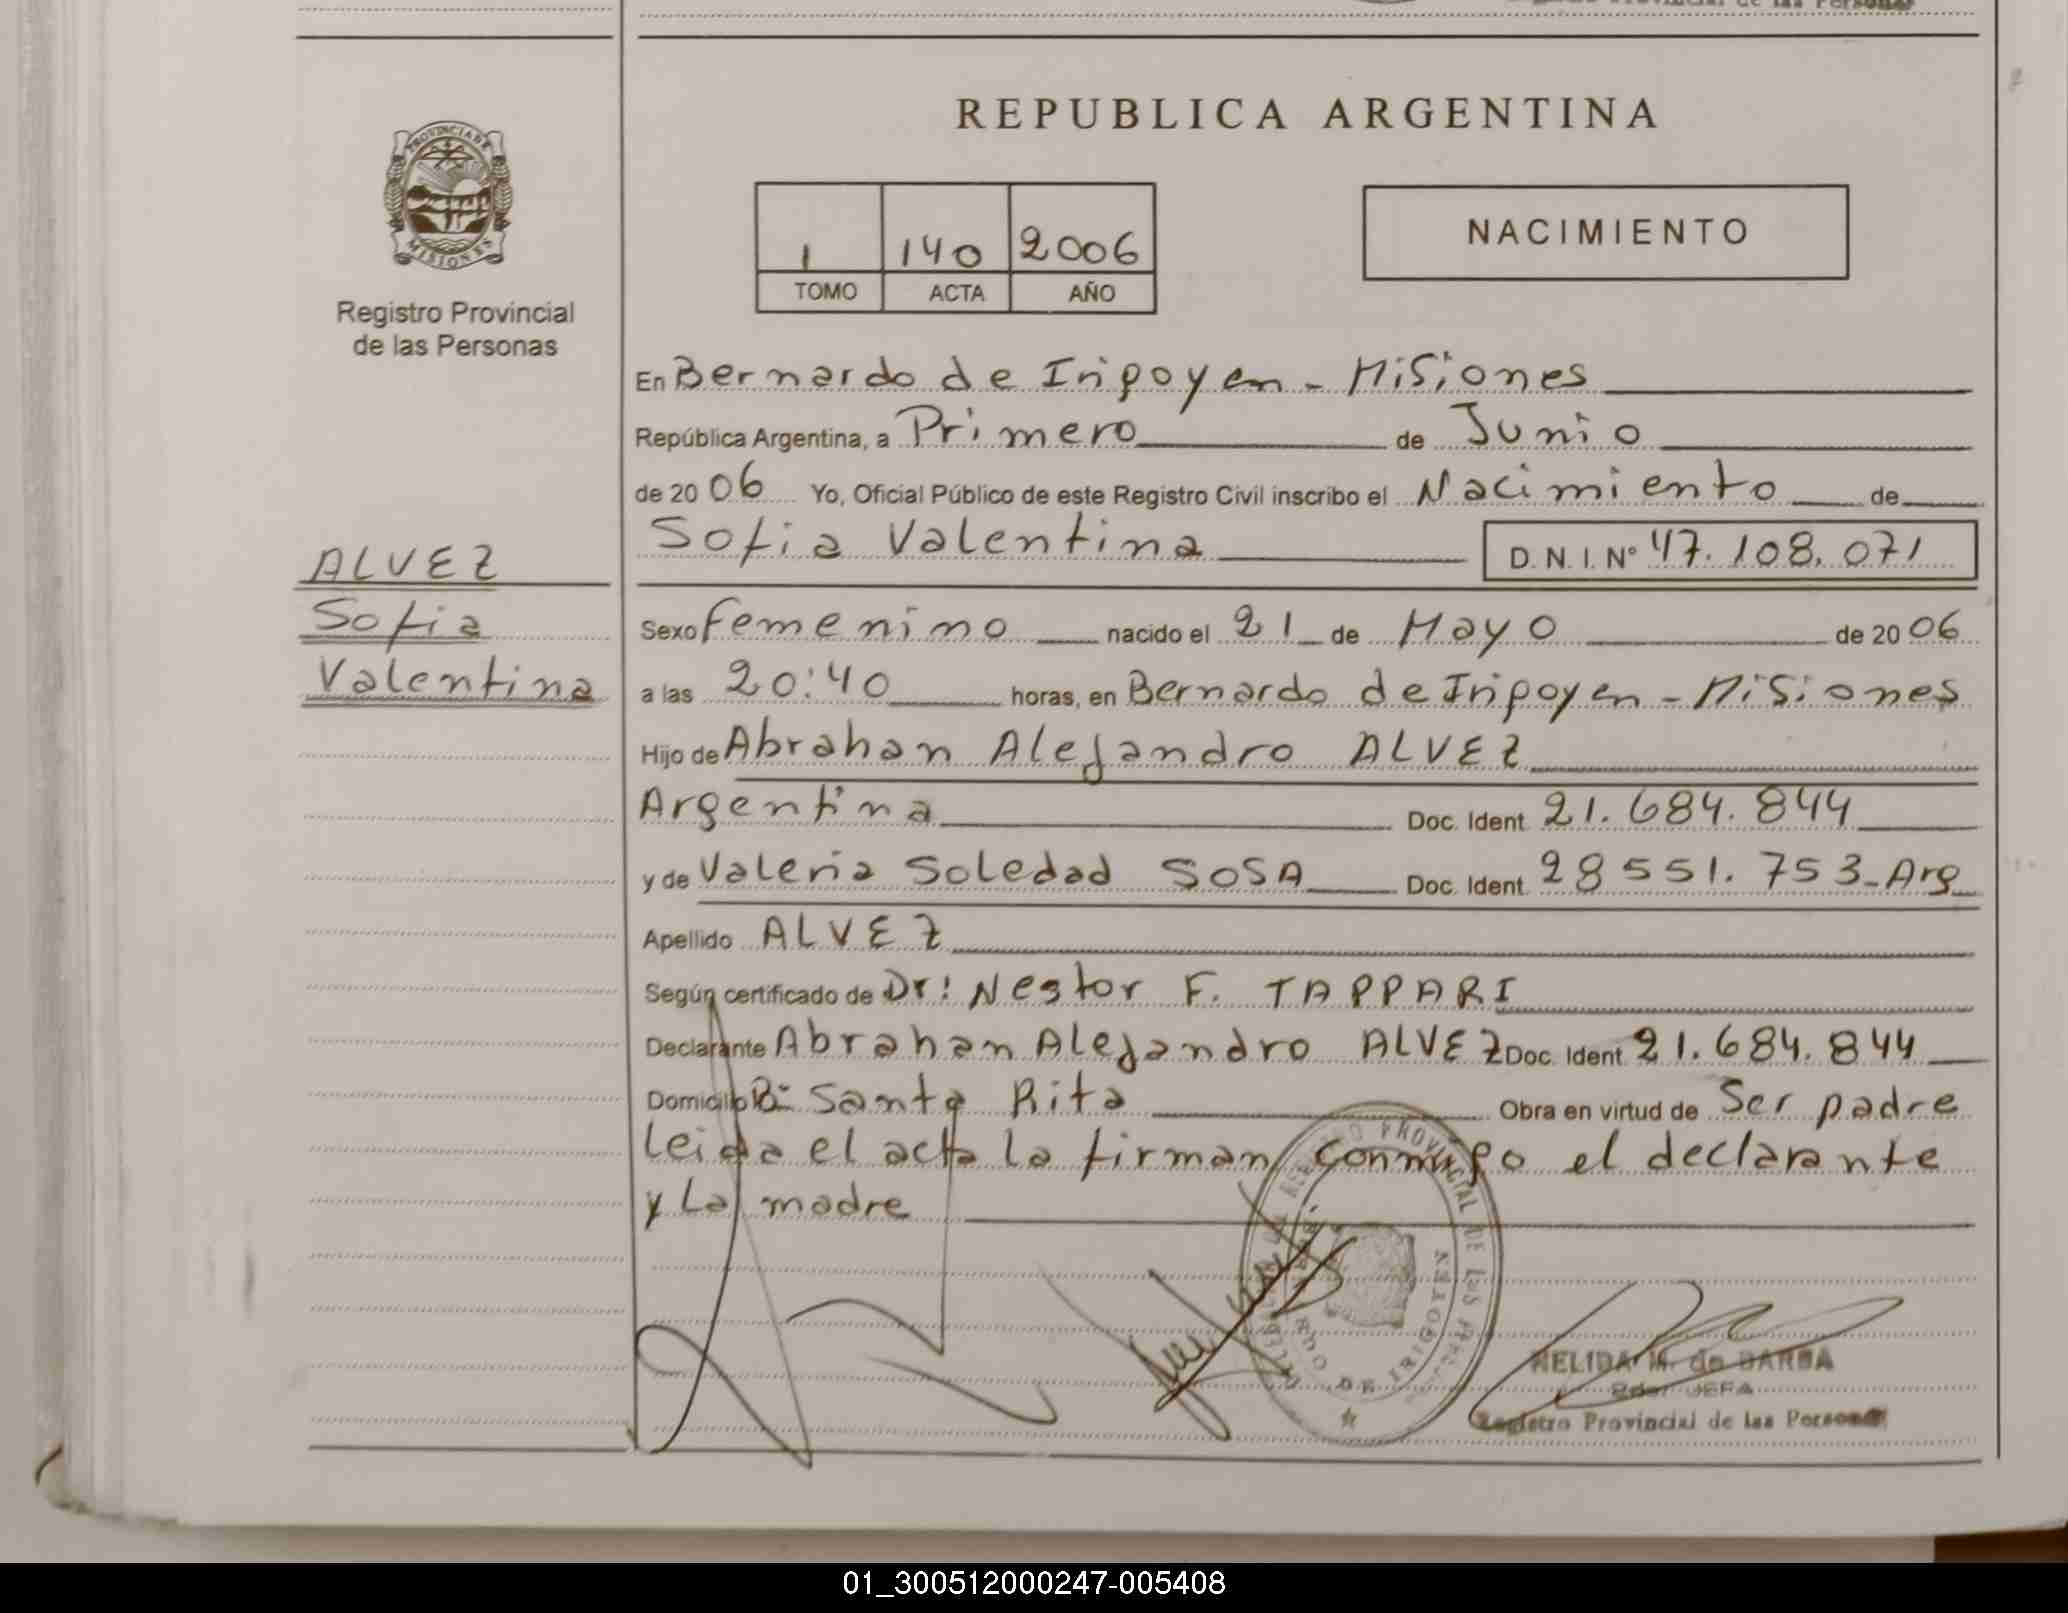 REPUBLICA ARGENTINA
PROVINCIA DE
MISIONES
Registro Provincial
de las Personas
1 140 2006
TOMO ACTA AÑO
NACIMIENTO
En Bernardo de Irigoyen - Misiones
República Argentina, a Primero de Junio
de 2006 Yo, Oficial Público de este Registro Civil inscribo el Nacimiento de
ALVEZ
Sofia
Valentina
Sofia Valentina D. N. I. Nº 47.108.071
Sexo Femenino nacido el 21 de Mayo de 2006
a las 20:40 horas, en Bernardo de Irigoyen - Misiones
Hijo de Abrahan Alejandro ALVEZ
Argentina Doc. Ident. 21.684.844
y de Valeria Soledad SOSA Doc. Ident. 28551.753-Arg
Apellido ALVEZ
Según certificado de Dr: Nestor F. TAPPARI
Declarante Abrahan Alejandro ALVEZ Doc. Ident. 21.684.844
Domicilio Bº Santa Rita Obra en virtud de Ser padre
Leida el acta la firman conmigo el declarante
y La madre
REGISTRO PROVINCIAL DE LAS
DE IRIGOYEN
NELIDA M. de BARBA
JEFA
Registro Provincial de las Personas
01_300512000247-005408